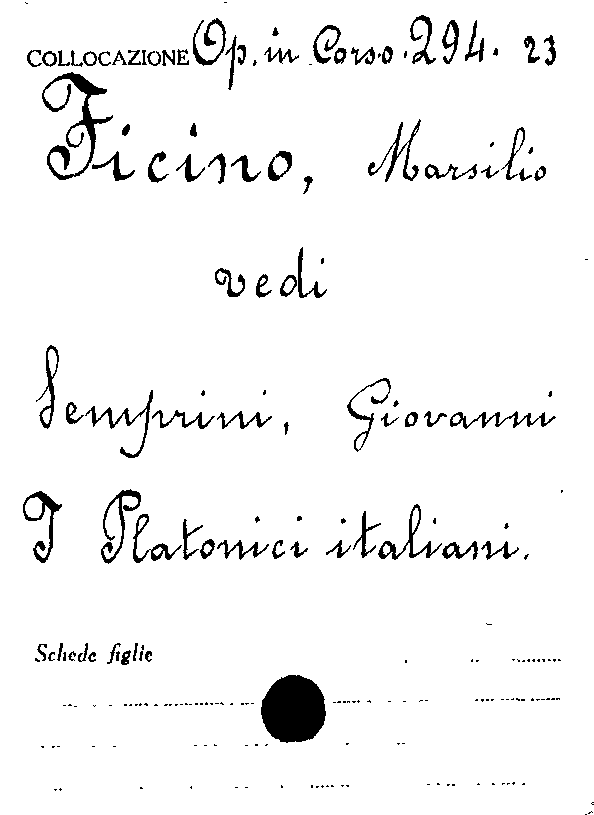 COLLOCAZIONE Op. in Corso. 294. 23
Ficino, Marsilio
vedi
Semprini, Giovanni
I Platonici italiani.
Schede figlie